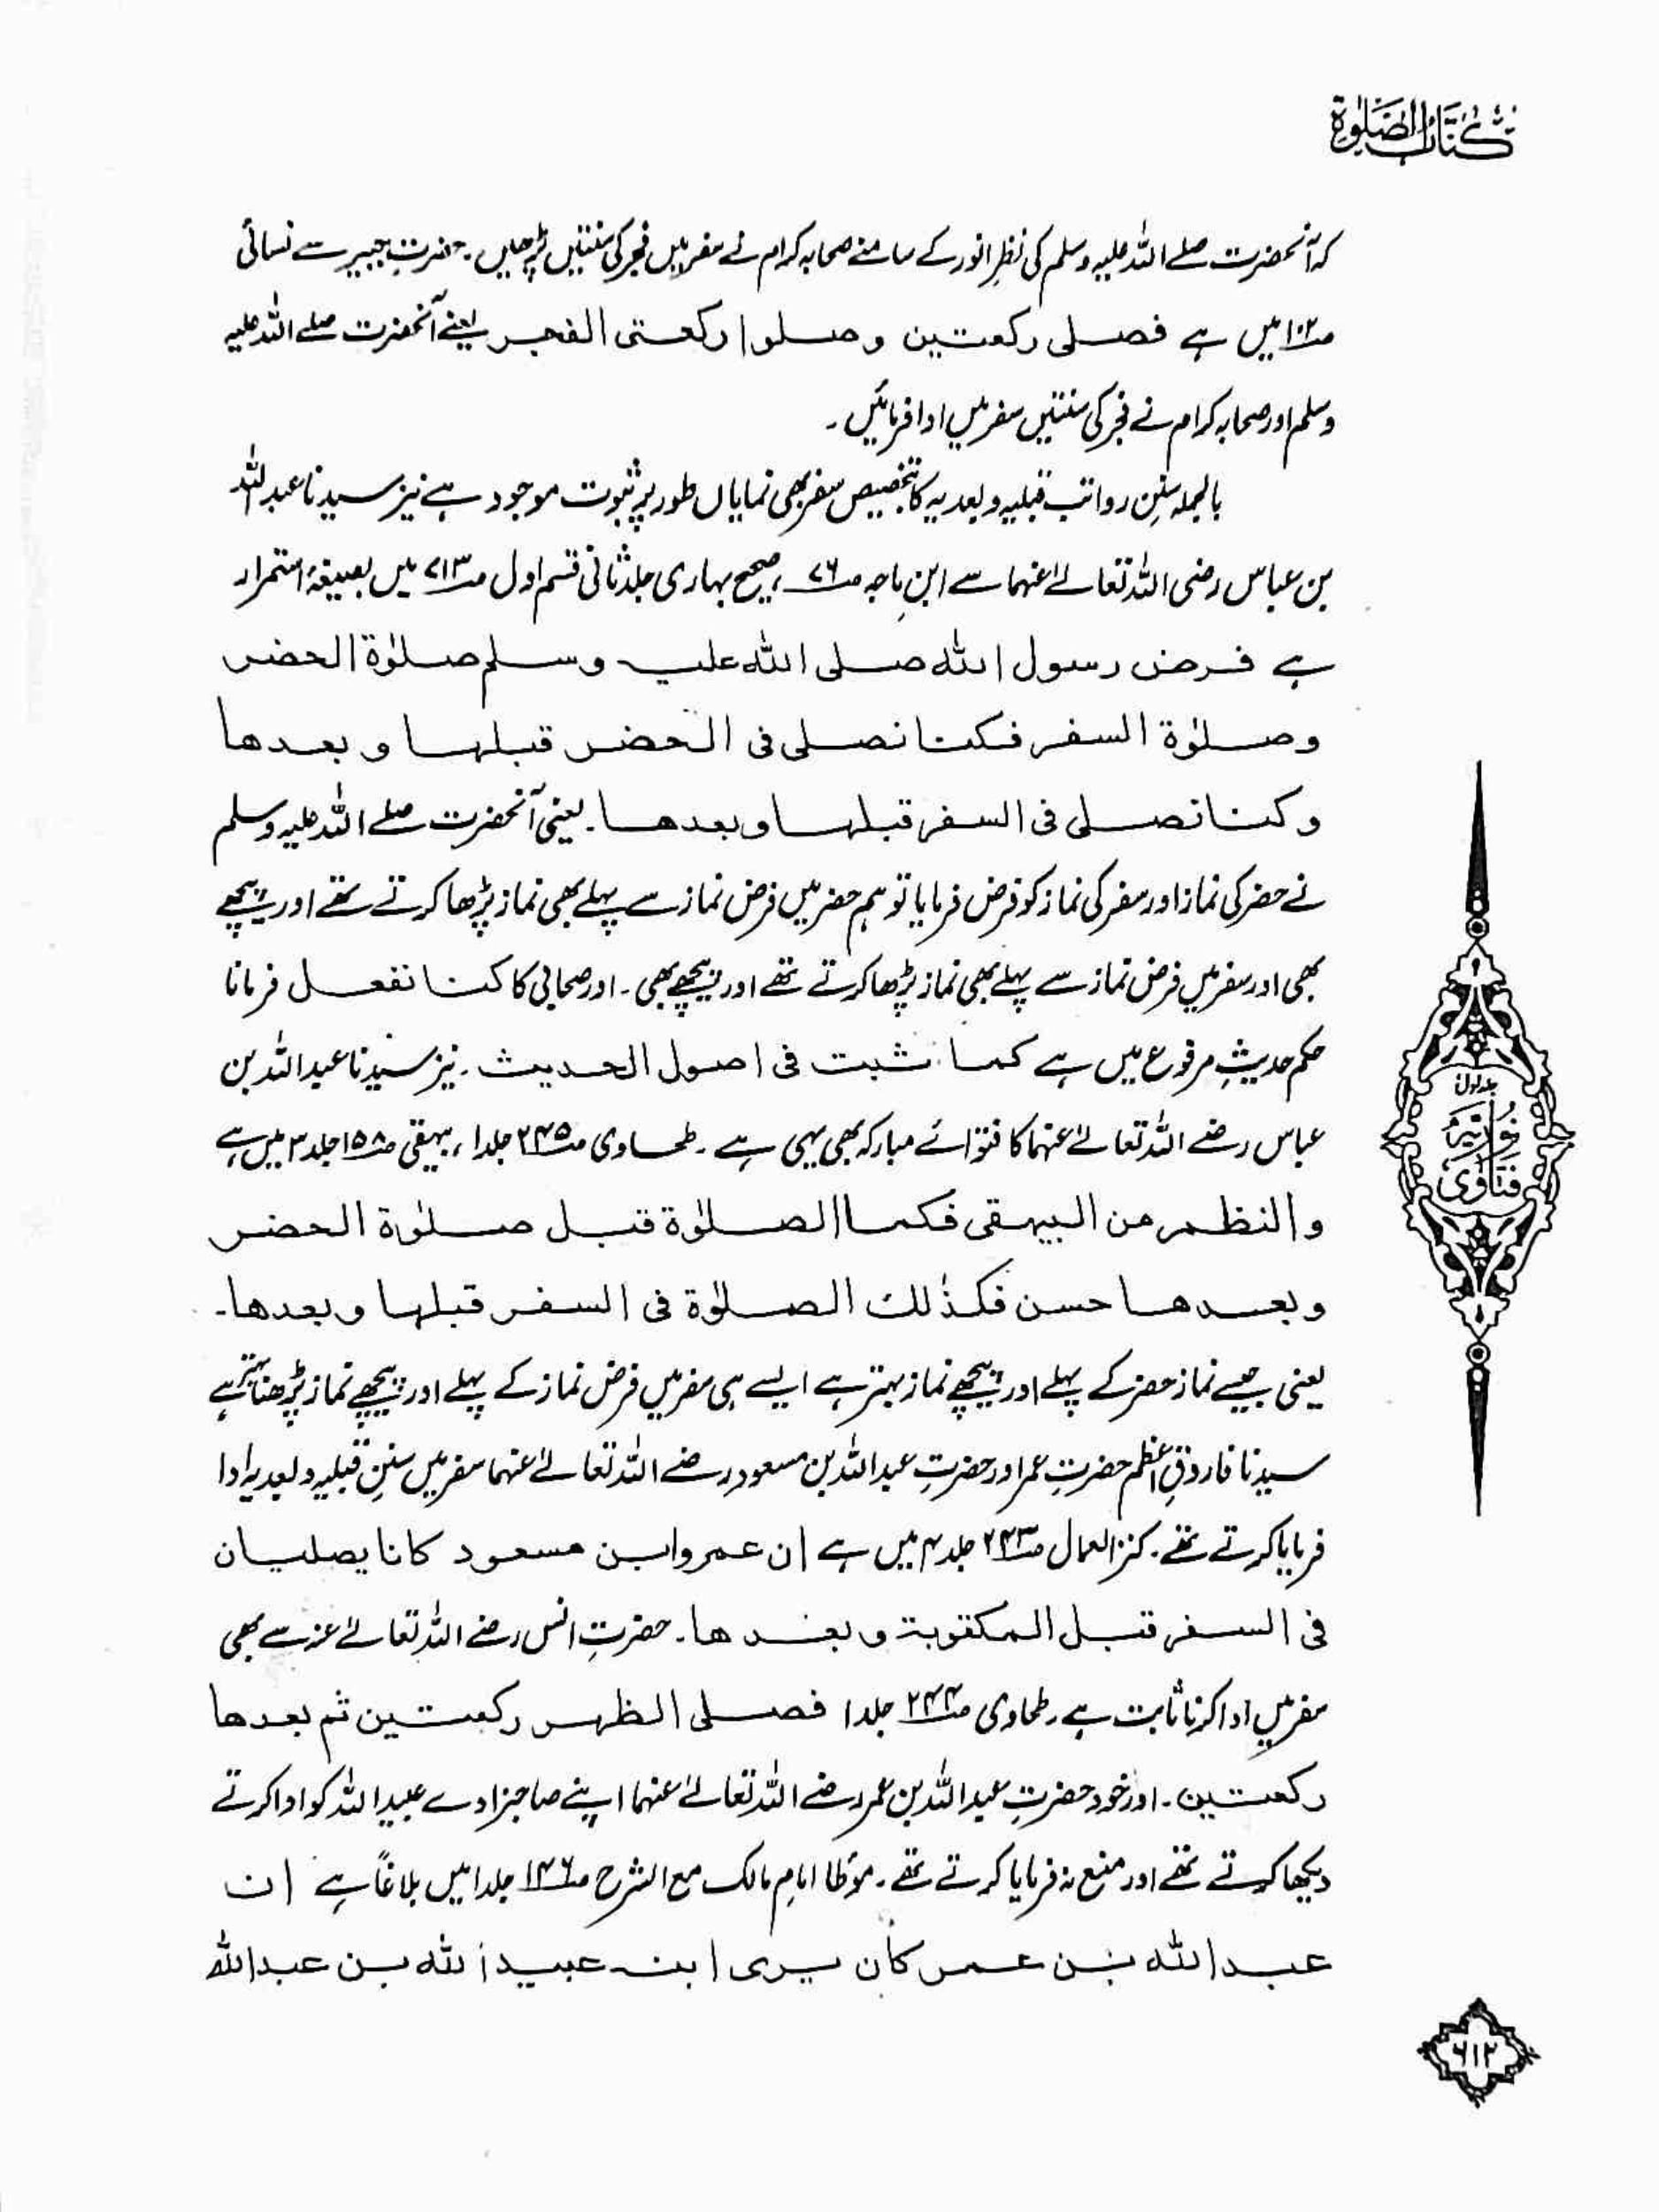 کتاب الصلوٰة
کہ آنحضرت صلے اللہ علیہ وسلم کی نظرِ انور کے سامنے صحابہ کرام نے سفر میں فجر کی سنتیں پڑھیں۔ حضرتِ جبیر سے نسائی
ص۱۰۲ میں ہے فصلی رکعتین وصلوا رکعتی الفجر یعنے آنحضرت صلے اللہ علیہ
وسلم اور صحابہ کرام نے فجر کی سنتیں سفر میں ادا فرمائیں۔
بالجملہ سننِ رواتب قبلیہ و بعدیہ کا بتخصیص سفر بھی نمایاں طور پر ثبوت موجود ہے نیز سیدنا عبداللہ
بن عباس رضی اللہ تعالےٰ عنہما سے ابنِ ماجہ ص۷۶، صحیح بہاری جلد ثانی قسم اول ص۷۱۳ میں بصیغۂ استمرار
ہے فرض رسول اللہ صلی اللہ علیہ وسلم صلوٰة الحضر
وصلوٰة السفر فکنا نصلی فی الحضر قبلہا و بعدھا
وکنا نصلی فی السفر قبلہا وبعدھا۔ یعنی آنحضرت صلے اللہ علیہ وسلم
نے حضر کی نماز اور سفر کی نماز کو فرض فرمایا تو ہم حضر میں فرض نماز سے پہلے بھی نماز پڑھا کرتے تھے اور پیچھے
بھی اور سفر میں فرض نماز سے پہلے بھی نماز پڑھا کرتے تھے اور پیچھے بھی۔ اور صحابی کا کنا نفعل فرمانا
حکم حدیثِ مرفوع میں ہے کما ثبت فی اصول الحدیث۔ نیز سیدنا عبداللہ بن
عباس رضے اللہ تعالےٰ عنہما کا فتوائے مبارکہ بھی یہی ہے۔ طحاوی ص۲۴۵ جلد۱، بیہقی ص۱۵۸ جلد۳ میں ہے
والنظم من البیہقی فکما الصلوٰة قبل صلوٰة الحضر
وبعدھا حسن فکذٰلک الصلوٰة فی السفر قبلہا وبعدھا۔
یعنی جیسے نماز حضر کے پہلے اور پیچھے نماز بہتر ہے ایسے ہی سفر میں فرض نماز کے پہلے اور پیچھے نماز پڑھنا بہتر ہے
سیدنا فاروقِ اعظم حضرتِ عمر اور حضرتِ عبداللہ بن مسعود رضے اللہ تعالےٰ عنہما سفر میں سننِ قبلیہ و بعدیہ ادا
فرمایا کرتے تھے۔ کنز العمال ص۲۴۳ جلد۴ میں ہے ان عمر وابن مسعود کانا یصلیان
فی السفر قبل المکتوبة وبعدھا۔ حضرتِ انس رضے اللہ تعالےٰ عنہ سے بھی
سفر میں ادا کرنا ثابت ہے۔ طحاوی ص۲۴۴ جلد۱ فصلی الظہر رکعتین ثم بعدھا
رکعتین۔ اور خود حضرتِ عبداللہ بن عمر رضے اللہ تعالےٰ عنہما اپنے صاحبزادے عبیداللہ کو ادا کرتے
دیکھا کرتے تھے اور منع نہ فرمایا کرتے تھے۔ مؤطا امامِ مالک مع الشرح ص۱۴۶ جلد۱ میں بلاغاً ہے ان
عبداللہ بن عمر کان یری ابنہ عبیداللہ بن عبداللہ
جلد اول
نوریہ
فتاوی
۶۱۲